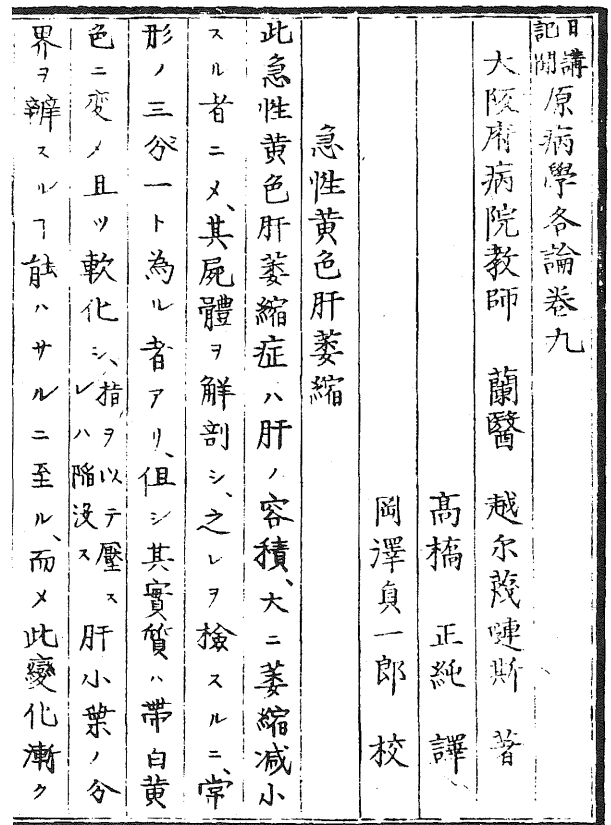 日講記聞 原病學各論卷九
大阪府病院教師 蘭醫 越尔蔑嗹斯 著
高橋 正純 譯
岡澤貞一郎 校
急性黄色肝萎縮
此急性黄色肝萎縮症ハ肝ノ容積、大ニ萎縮减小
スル者ニメ、其屍體ヲ解剖シ、之レヲ檢スルニ、常
形ノ三分一ト為ル者アリ、伹シ其實質ハ帶白黄
色ニ変メ且ツ軟化シ、指ヲ以テ壓スレハ陥没ス 肝小葉ノ分
界ヲ辨スルヿ能ハサルニ至ル、而メ此變化漸ク